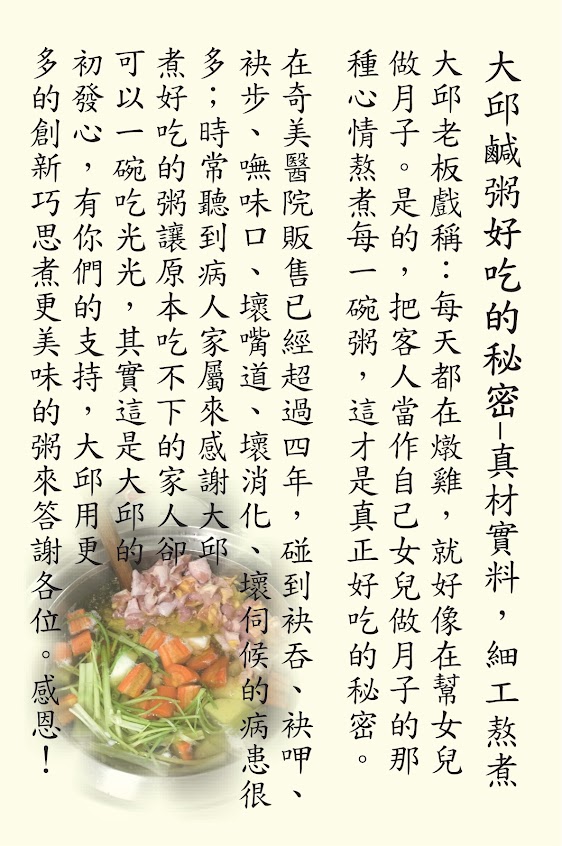 大邱鹹粥好吃的秘密–真材實料，細工熬煮
大邱老板戲稱：每天都在燉雞，就好像在幫女兒
做月子。是的，把客人當作自己女兒做月子的那
種心情熬煮每一碗粥，這才是真正好吃的秘密。
在奇美醫院販售已經超過四年，碰到袂吞、袂呷、
袂步、嘸味口、壞嘴道、壞消化、壞伺候的病患很
多；時常聽到病人家屬來感謝大邱
煮好吃的粥讓原本吃不下的家人卻
可以一碗吃光光，其實這是大邱的
初發心，有你們的支持，大邱用更
多的創新巧思煮更美味的粥來答謝各位。感恩！